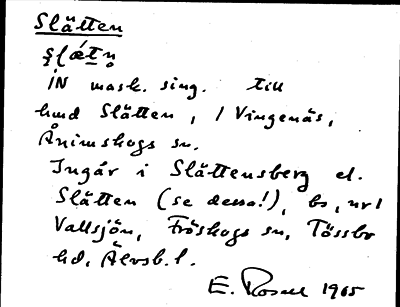 Slätten
ʂlǽtn̥
IN mask. sing. till
hmd Slätten, 1 Vingenäs,
Ånimskogs sn.
Ingår i Slättensberg el.
Slätten (se dessa!), bs, nr 1
Vallsjön, Fröskogs sn, Tössbo
hd, Älvsb. l.
E. Rosell 1965